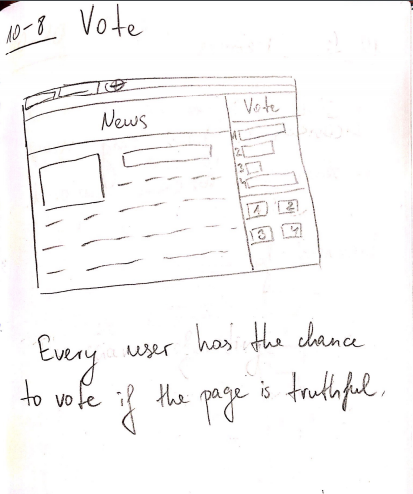 10-8 Vote
News
Vote
1
2
3
4
1 2
3 4
Every user has the chance
to vote if the page is truthful.